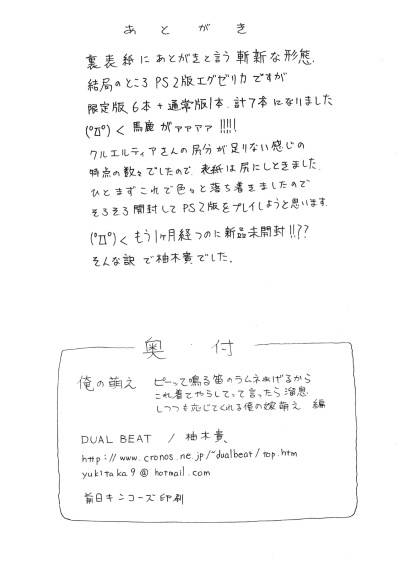 あとがき
裏表紙にあとがきと言う斬新な形態.
結局のところPS2版エグゼリカですが
限定版6本+通常版1本.計7本になりました
(°Д°)< 馬鹿がァァァァ!!!!!
クルエルティアさんの尻分が足りない感じの
特典の数々でしたので.表紙は尻にしときました.
ひとまずこれで色々と落ち着きましたので
そろそろ開封してPS2版をプレイしようと思います.
(°Д°)< もう1ヶ月経つのに新品未開封!!??
そんな訳で柚木貴でした.
奥・付
俺の萌え ピーって鳴る笛のラムネあげるから
これ着てやらしてって言ったら溜息
しつつも応じてくれる俺の嫁萌え 編
DUAL BEAT / 柚木貴、
http://www.cronos.ne.jp/~dualbeat/top.htm
yukitaka9@hotmail.com
前日キンコーズ印刷